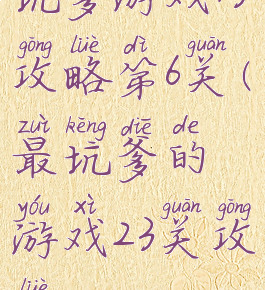 坑爹游戏巧
gōng lüè dì guān
攻略第6关(
zuì kēng diē de
最坑爹的
yóu xì guān gōng
游戏23关攻
lüè